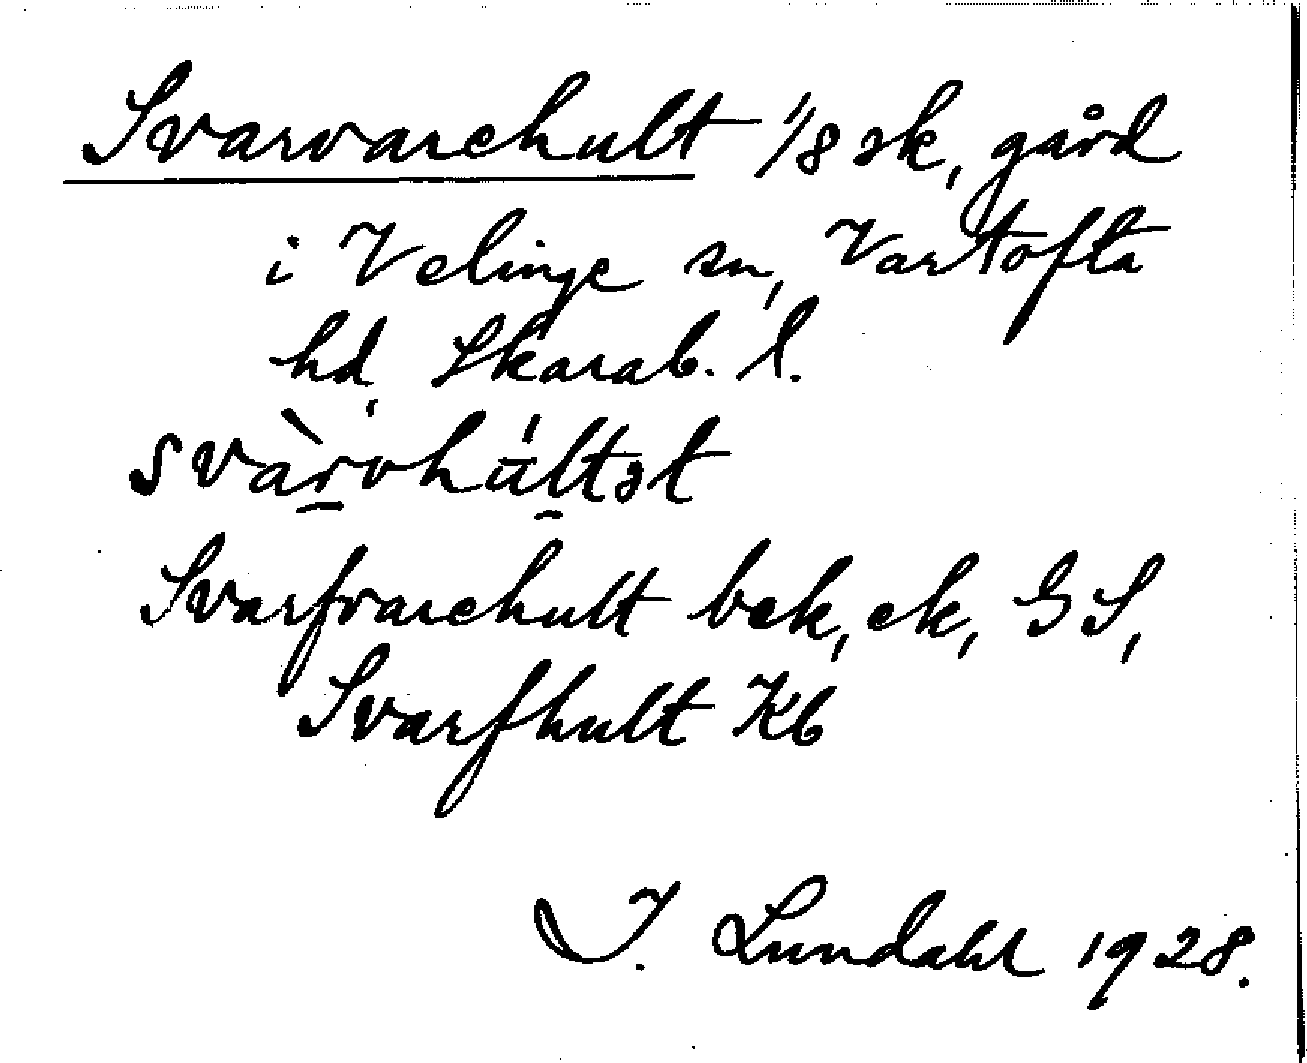 Svarvarehult 1/8 sk, gård
i Velinge sn, Vartofta
hd, Skarab. l.
svàr̠vhu̇́l̠tət
Svarfvarehult bek, ek, GS,
Svarfhult Kb
I. Lundahl 1928.